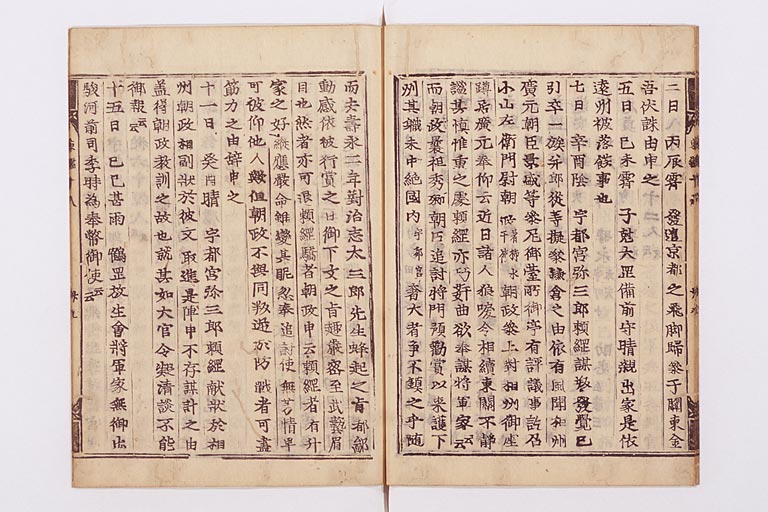 二日 丙辰霽 發遣京都之飛脚歸參于關東金
吾伏誅由申之
五日 己未霽 子尅大罡備前守晴親出家是依
遠州被落餝事也
七日 辛酉陰 宇都宮弥三郎頼綱謀叛發覺已
引卒一族并郎從等擬參鎌倉之由依有風聞相州
廣元朝臣景盛等參尼御臺所御亭有評議事訖召
小山左衛門尉朝政 朝政參上對相州御座
蹲居廣元奉仰云近日諸人狼唳令相續東關不靜
識其慎惟重之處頼綱亦巧奸曲欲奉謀將軍家云云
而朝政曩祖秀郷朝臣追討將門預勸賞以来護下
州其職未中絶國内宇都宮奢大者爭不鎮之乎随
而去壽永二年對治志太三郎先生蜂起之間都鄙
動感依被行賞之日御下文之旨趣嚴密至武藝眉
目也然者亦可退頼綱驕者朝政申云頼綱者有外
家之好縦應嚴命雖變其眤忽奉追討使無芳情早
可被仰他人歟但朝政不與同叛逆於防戰者可盡
筋力之由辞申之
十一日 癸酉晴 宇都宮弥三郎頼綱献状於相
州朝政相副状於彼文取進之陣申不存謀計之由
蓋得朝政教訓之故也就其如大官令凝清談不能
御報云云
十五日 己巳甚雨 鶴罡放生會將軍家無御出
駿河前司季時為奉幣御使云云